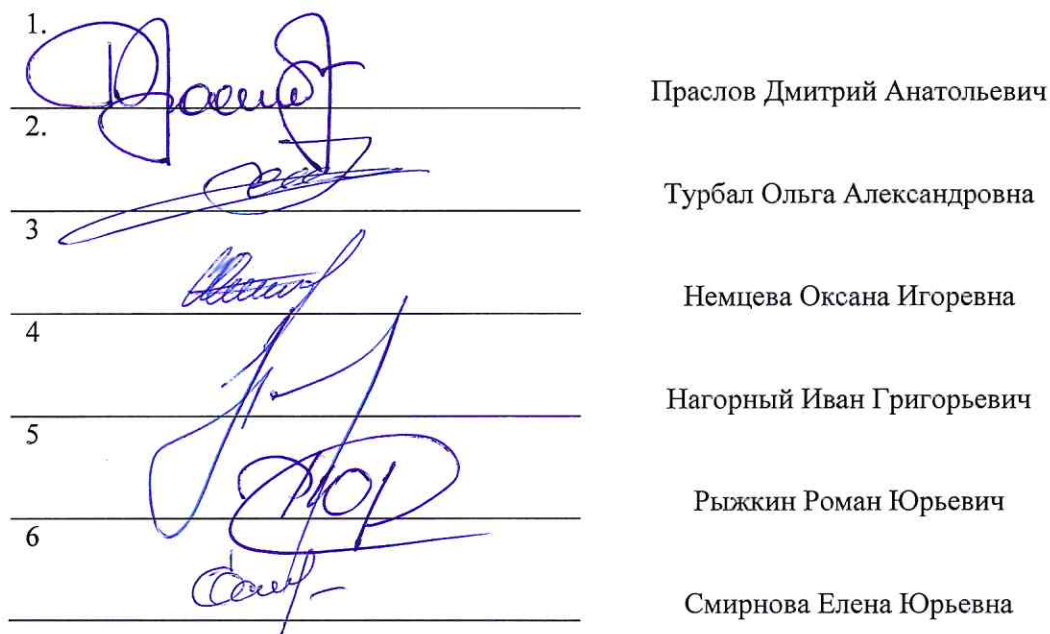 1.
Праслов Дмитрий Анатольевич
2.
Турбал Ольга Александровна
3
Немцева Оксана Игоревна
4
Нагорный Иван Григорьевич
5
Рыжкин Роман Юрьевич
6
Смирнова Елена Юрьевна